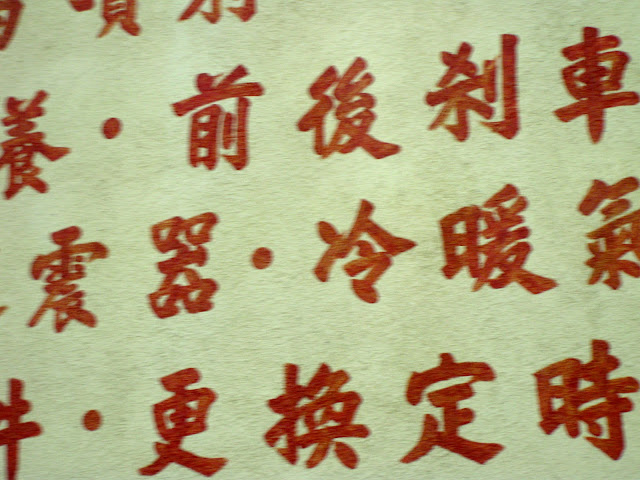 噴射
養·前後刹車
震器·冷暖氣
件·更換定時